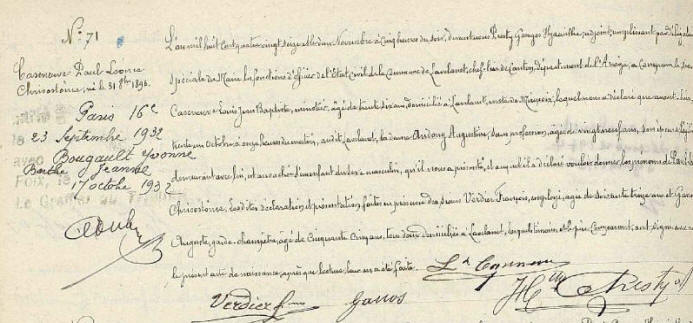 N.° 71
Cazeneuve Paul Léonce
Chrisostôme, né le 31 8bre 1896.
Paris 16e
23 Septembre 1932
Bougault Yvonne
Berthe Jeanne
Foix, le 17 octobre 1932
Le Greffier
L'an mil huit cent quatre vingt seize et le deux Novembre à cinq heures du soir, devant nous Presty Georges Hyacinthe, adjoint, remplissant par délégation
spéciale du Maire les fonctions d'officier de l'Etat civil de la Commune de Lavelanet, chef-lieu de Canton, département de l'Ariège, a comparu le sieur
Cazeneuve Louis Jean Baptiste, menuisier, âgé de trente ans, domicilié à Lavelanet, lequel nous a déclaré que
trente un Octobre à onze heures du matin, audit Lavelanet, la dame Augustine, sans profession, âgée de vingt
demeurant avec lui, est accouchée d'un enfant du sexe masculin, qu'il nous a présenté, et auquel il a déclaré vouloir donner les prénoms de Paul Léonce
Chrisostôme. Lesdites déclaration et présentation faites en présence des sieurs Verdier François, employé, âgé de soixante treize ans et Garros
Auguste, garde-champêtre, âgé de Cinquante Cinq ans, tous deux domiciliés à Lavelanet, lesquels témoins et le père Comparant, ont signé avec nous
le présent acte de naissance, après que lecture leur en a été faite.
Verdier Garros Presty